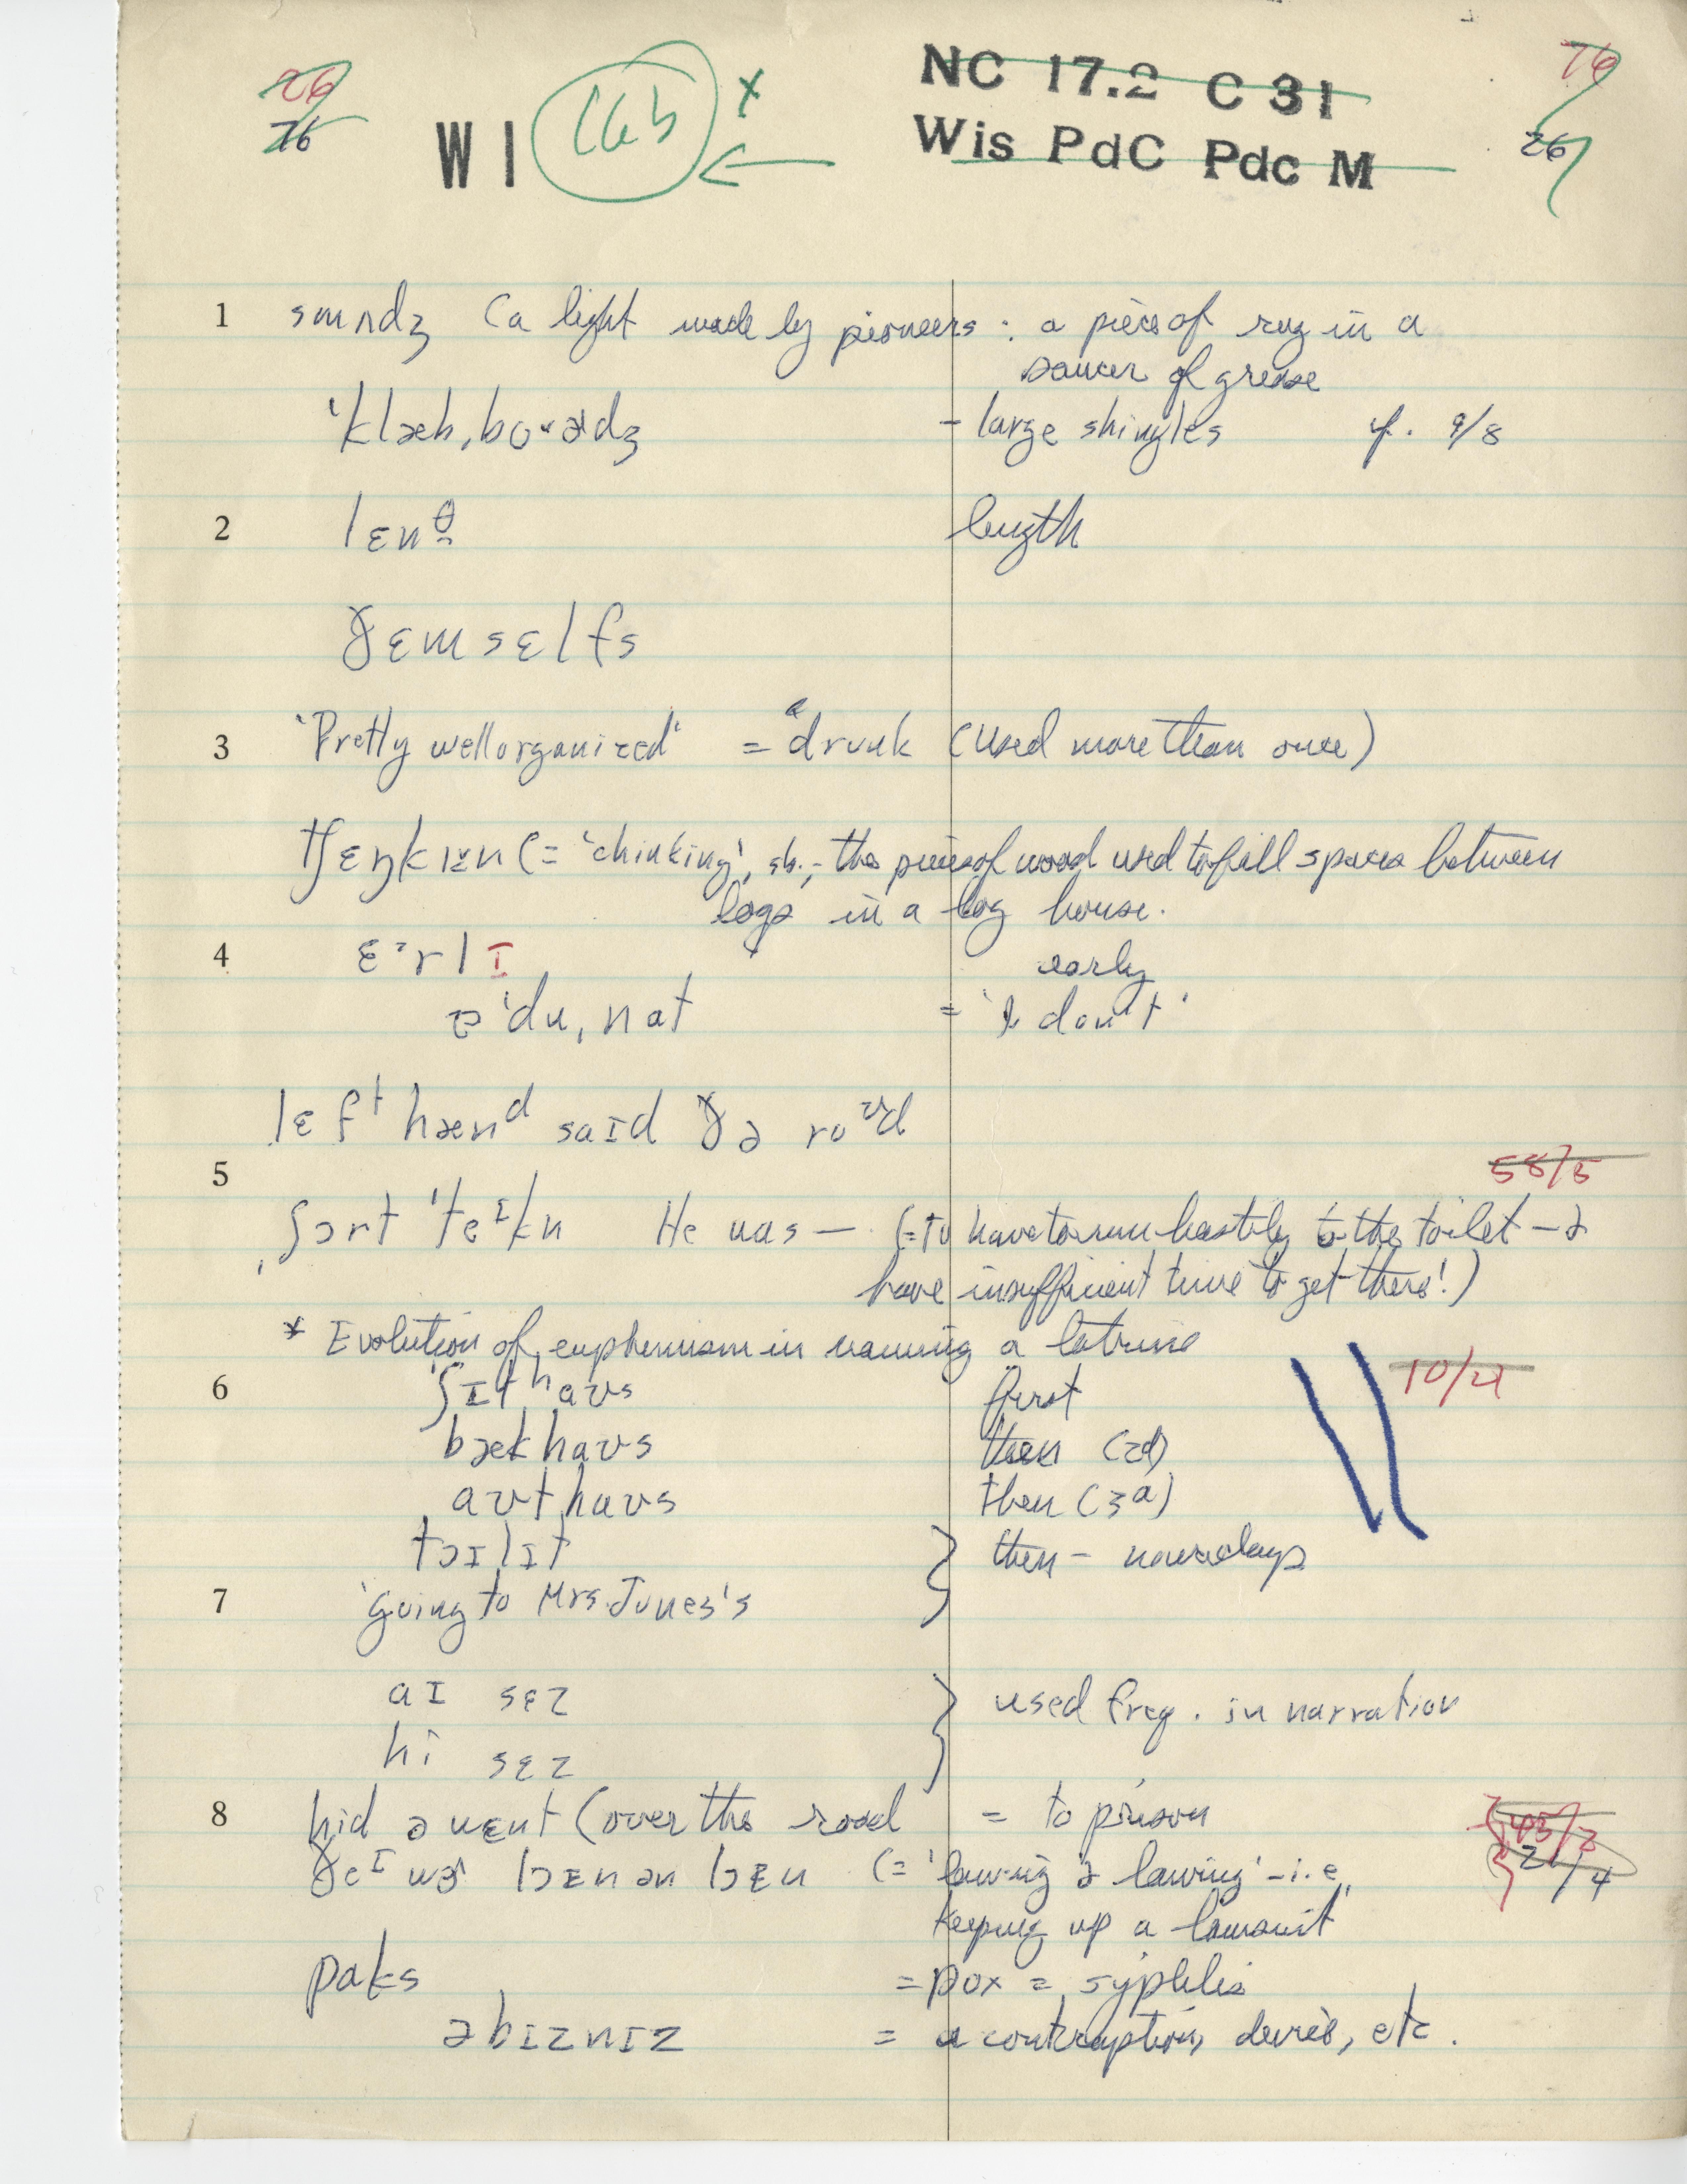 26 76
26 76
WI 16b x
NC 17.2 C 31
Wis PdC Pdc M
1 (a light made by pioneers : a piece of rag in a
saucer of grease
ˈklæbˌboˑɚdz - large shingles cf. 9/8
2 lɛnθ length
ðɛmsɛlfs
3 'Pretty well organized' = drunk (used more than once)
(= 'chinking', sb., - the pieces of wood used to fill spaces between
logs in a log house.
4 ɛɜrlɪ early
ɐ ˈduˌnɑt = 'I don't'
lɛfᵗ hænᵈ saɪd ðə roᶷd
5 58/5
ʃɔrt ˈteɪkn He was — (= to have to run hastily to the toilet — &
have insufficient time to get there!)
* Evolution of euphemism in naming a latrine
6 ʃɪthaʊs first 10/4
bækhaʊs then (2d)
aʊthaʊs then (3d)
tɔɪlɪt } then - nowadays
7 'going to Mrs. Jones's
aɪ sɛz } used freq. in narration
hi sɛz
8 hid ə wɛnt (over the road = to prison 45/3
ðeɪ wɚ lɔɪn ən lɔɪn (= 'lawing & lawing' - i.e. 21/4
keeping up a lawsuit
pɑks = pox = syphilis
ə bɪznɪz = a contraption, device, etc.